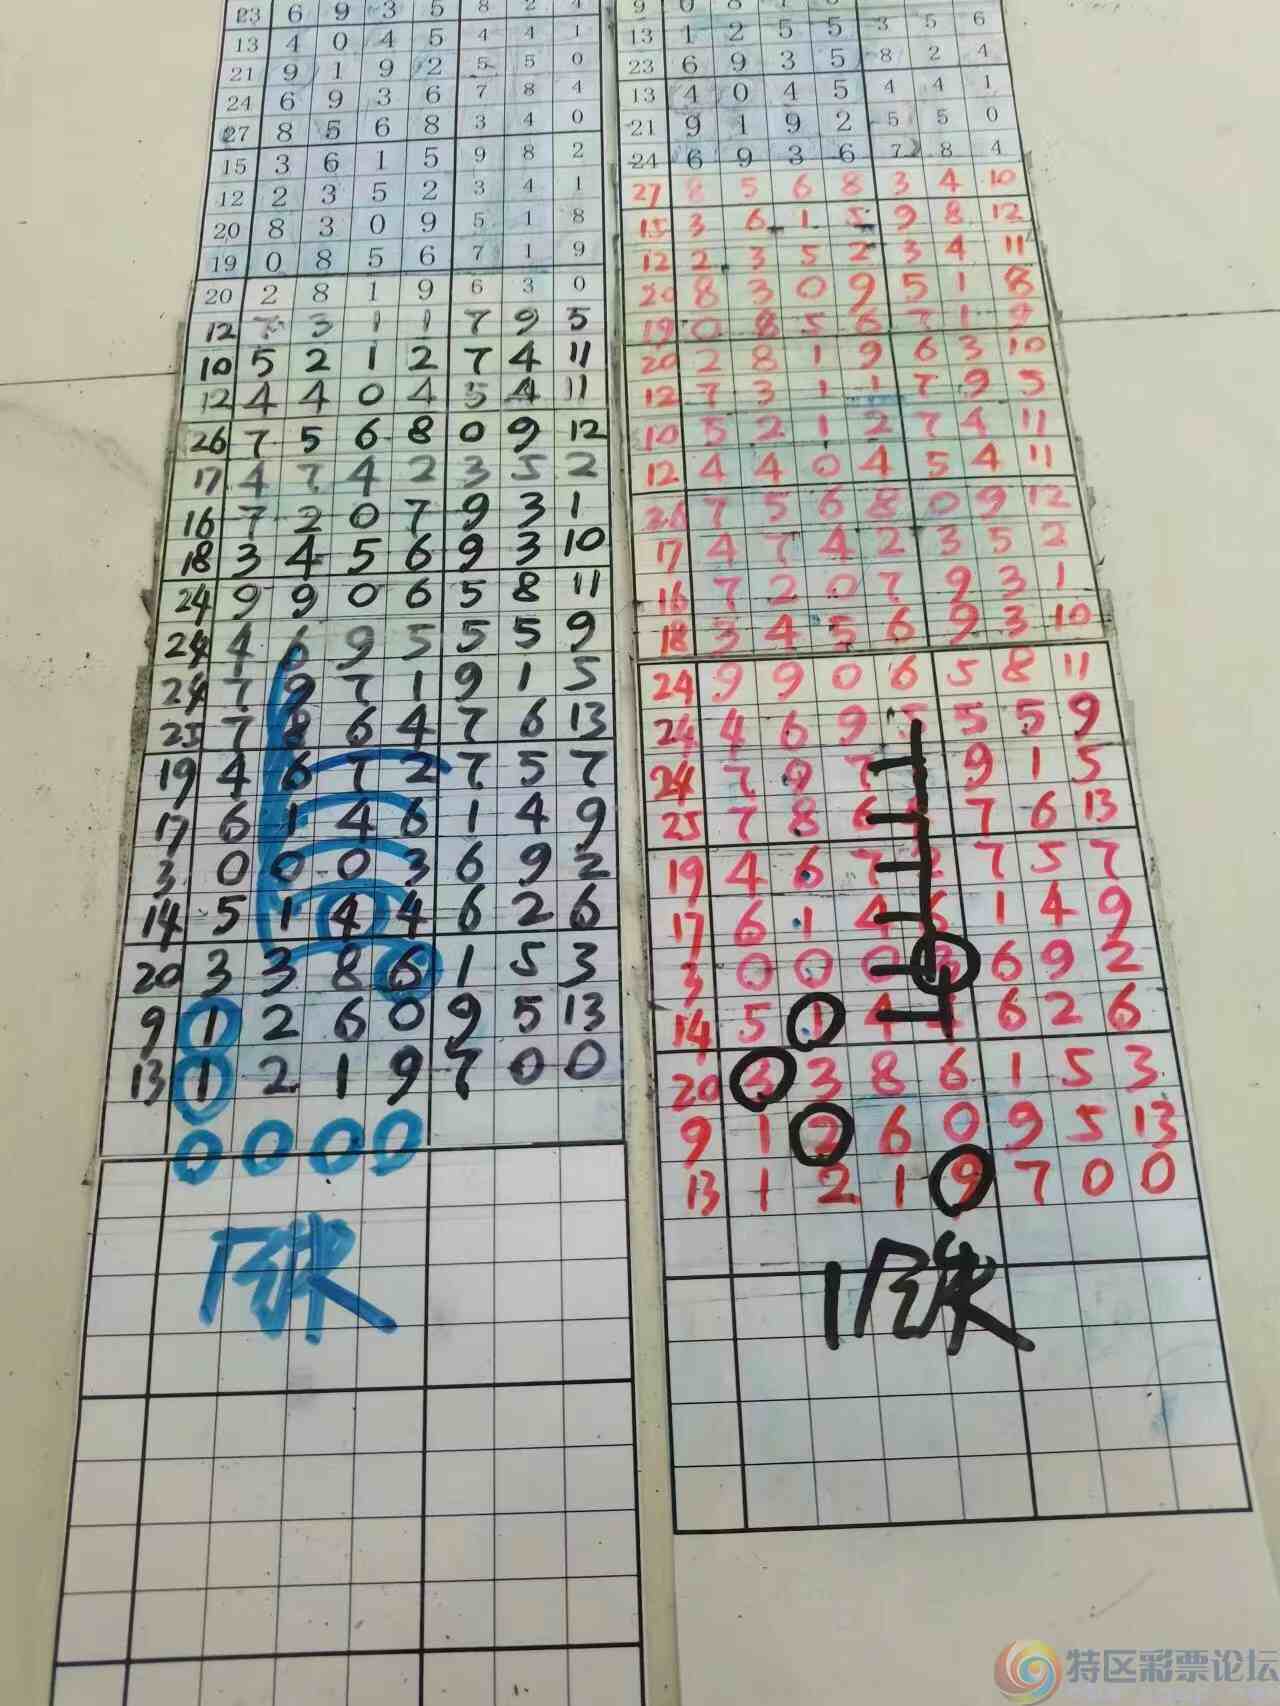 23 6 9 3 5 8 2 4
13 4 0 4 5 4 4 1
21 9 1 9 2 5 5 0
24 6 9 3 6 7 8 4
27 8 5 6 8 3 4 0
15 3 6 1 5 9 8 2
12 2 3 5 2 3 4 1
20 8 3 0 9 5 1 8
19 0 8 5 6 7 1 9
20 2 8 1 9 6 3 0
12 7 3 1 1 7 9 5
10 5 2 1 2 7 4 11
12 4 4 0 4 5 4 11
26 7 5 6 8 0 9 12
17 4 7 4 2 3 5 2
16 7 2 0 7 9 3 1
18 3 4 5 6 9 3 10
24 9 9 0 6 5 8 11
24 4 6 9 5 5 5 9
24 7 9 7 1 9 1 5
25 7 8 6 4 7 6 13
19 4 6 7 2 7 5 7
17 6 1 4 6 1 4 9
3 0 0 0 3 6 9 2
14 5 1 4 4 6 2 6
20 3 3 8 6 1 5 3
9 1 2 6 0 9 5 13
13 1 2 1 9 7 0 0
0 0 0 0
13 1 2 5 5 3 5 6
23 6 9 3 5 8 2 4
13 4 0 4 5 4 4 1
21 9 1 9 2 5 5 0
24 6 9 3 6 7 8 4
27 8 5 6 8 3 4 10
15 3 6 1 5 9 8 12
12 2 3 5 2 3 4 11
20 8 3 0 9 5 1 8
19 0 8 5 6 7 1 9
20 2 8 1 9 6 3 10
12 7 3 1 1 7 9 5
10 5 2 1 2 7 4 11
12 4 4 0 4 5 4 11
26 7 5 6 8 0 9 12
17 4 7 4 2 3 5 2
16 7 2 0 7 9 3 1
18 3 4 5 6 9 3 10
24 9 9 0 6 5 8 11
24 4 6 9 5 5 5 9
24 7 9 7 9 1 5
25 7 8 6 7 6 13
19 4 6 7 2 7 5 7
17 6 1 4 6 1 4 9
3 0 0 0 3 6 9 2
14 5 1 4 4 6 2 6
20 3 3 8 6 1 5 3
9 1 2 6 0 9 5 13
13 1 2 1 9 7 0 0
特区彩票论坛